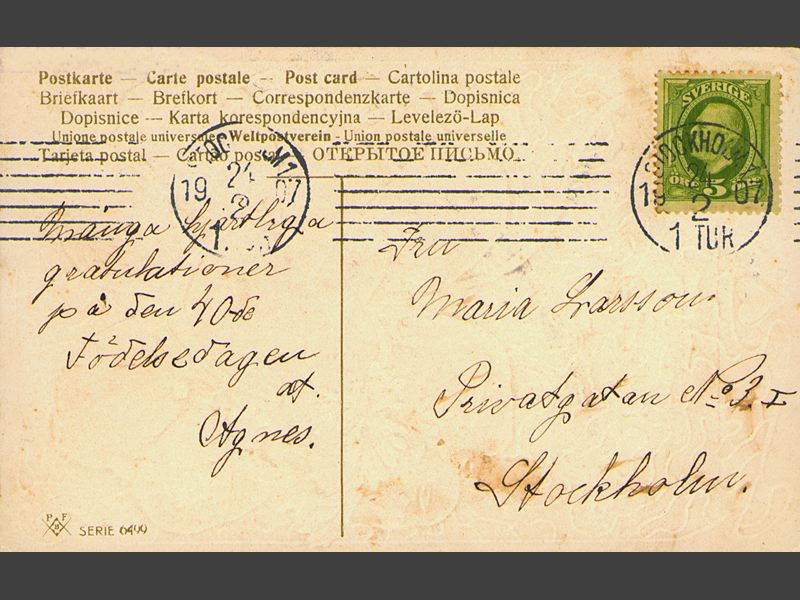 Postkarte — Carte postale — Post card — Cartolina postale
Briefkaart — Brefkort — Correspondenzkarte — Dopisnica
Dopisnice — Karta korespondencyjna — Levelező-Lap
Unione postale universale - Weltpostverein - Union postale universelle
Tarjeta postal — Cartão postal — ОТКРЫТОЕ ПИСЬМО.
SVERIGE
ÖRE 5
STOCKHOLM 1
19 24 07
2
1
STOCKHOLM 1
19 24 07
2
1 TUR
Många hjärtliga
gratulationer
på den 40de
Födelsedagen
af.
Agnes.
Fru
Maria Larsson.
Privatgatan No 3. I
Stockholm.
P F
B
SERIE 6499